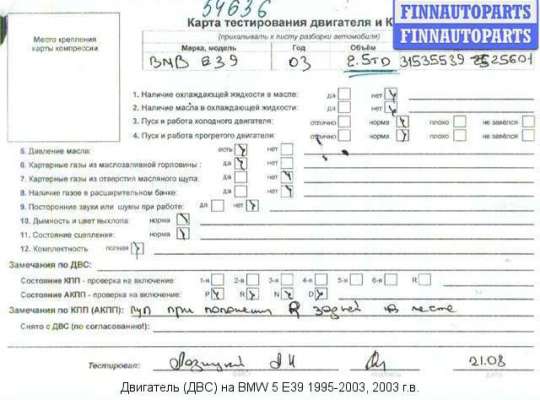 54636
FINNAUTOPARTS
FINNAUTOPARTS
Карта тестирования двигателя и К
(прикалывать к листу разборки автомобиля)
Место крепления карты компрессии
Марка, модель Год Объём
BMB E39 03 2.5TD 31535539
1. Наличие охлаждающей жидкости в масле: да нет
2. Наличие масла в охлаждающей жидкости: да нет
3. Пуск и работа холодного двигателя: отлично норма плохо не завёлся
4. Пуск и работа прогретого двигателя: отлично норма плохо не завёлся
5. Давление масла: есть нет
6. Картерные газы из маслозаливной горловины: да нет
7. Картерные газы из отверстия масляного щупа: да нет
8. Наличие газов в расширительном бачке: да нет
9. Посторонние звуки или шумы при работе: да нет
10. Дымность и цвет выхлопа: норма
11. Состояние сцепления: норма
12. Комплектность полная
Замечания по ДВС:
Состояние КПП - проверка на включение: 1-я 2-я 3-я 4-я 5-я 6-я R
Состояние АКПП - проверка на включение: P R N D
Замечания по КПП (АКПП): при положении R задней на месте
Снято с ДВС (по согласованию!):
Тестировал: 21.08
Двигатель (ДВС) на BMW 5 E39 1995-2003, 2003 г.в.